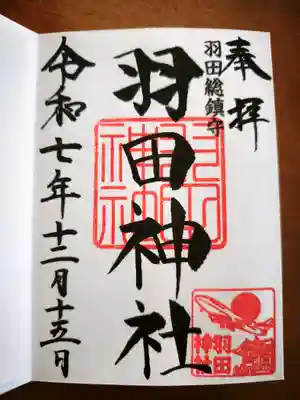 奉拝
羽田総鎮守
羽田神社
令和七年十二月十五日
羽田神社
羽田
神社